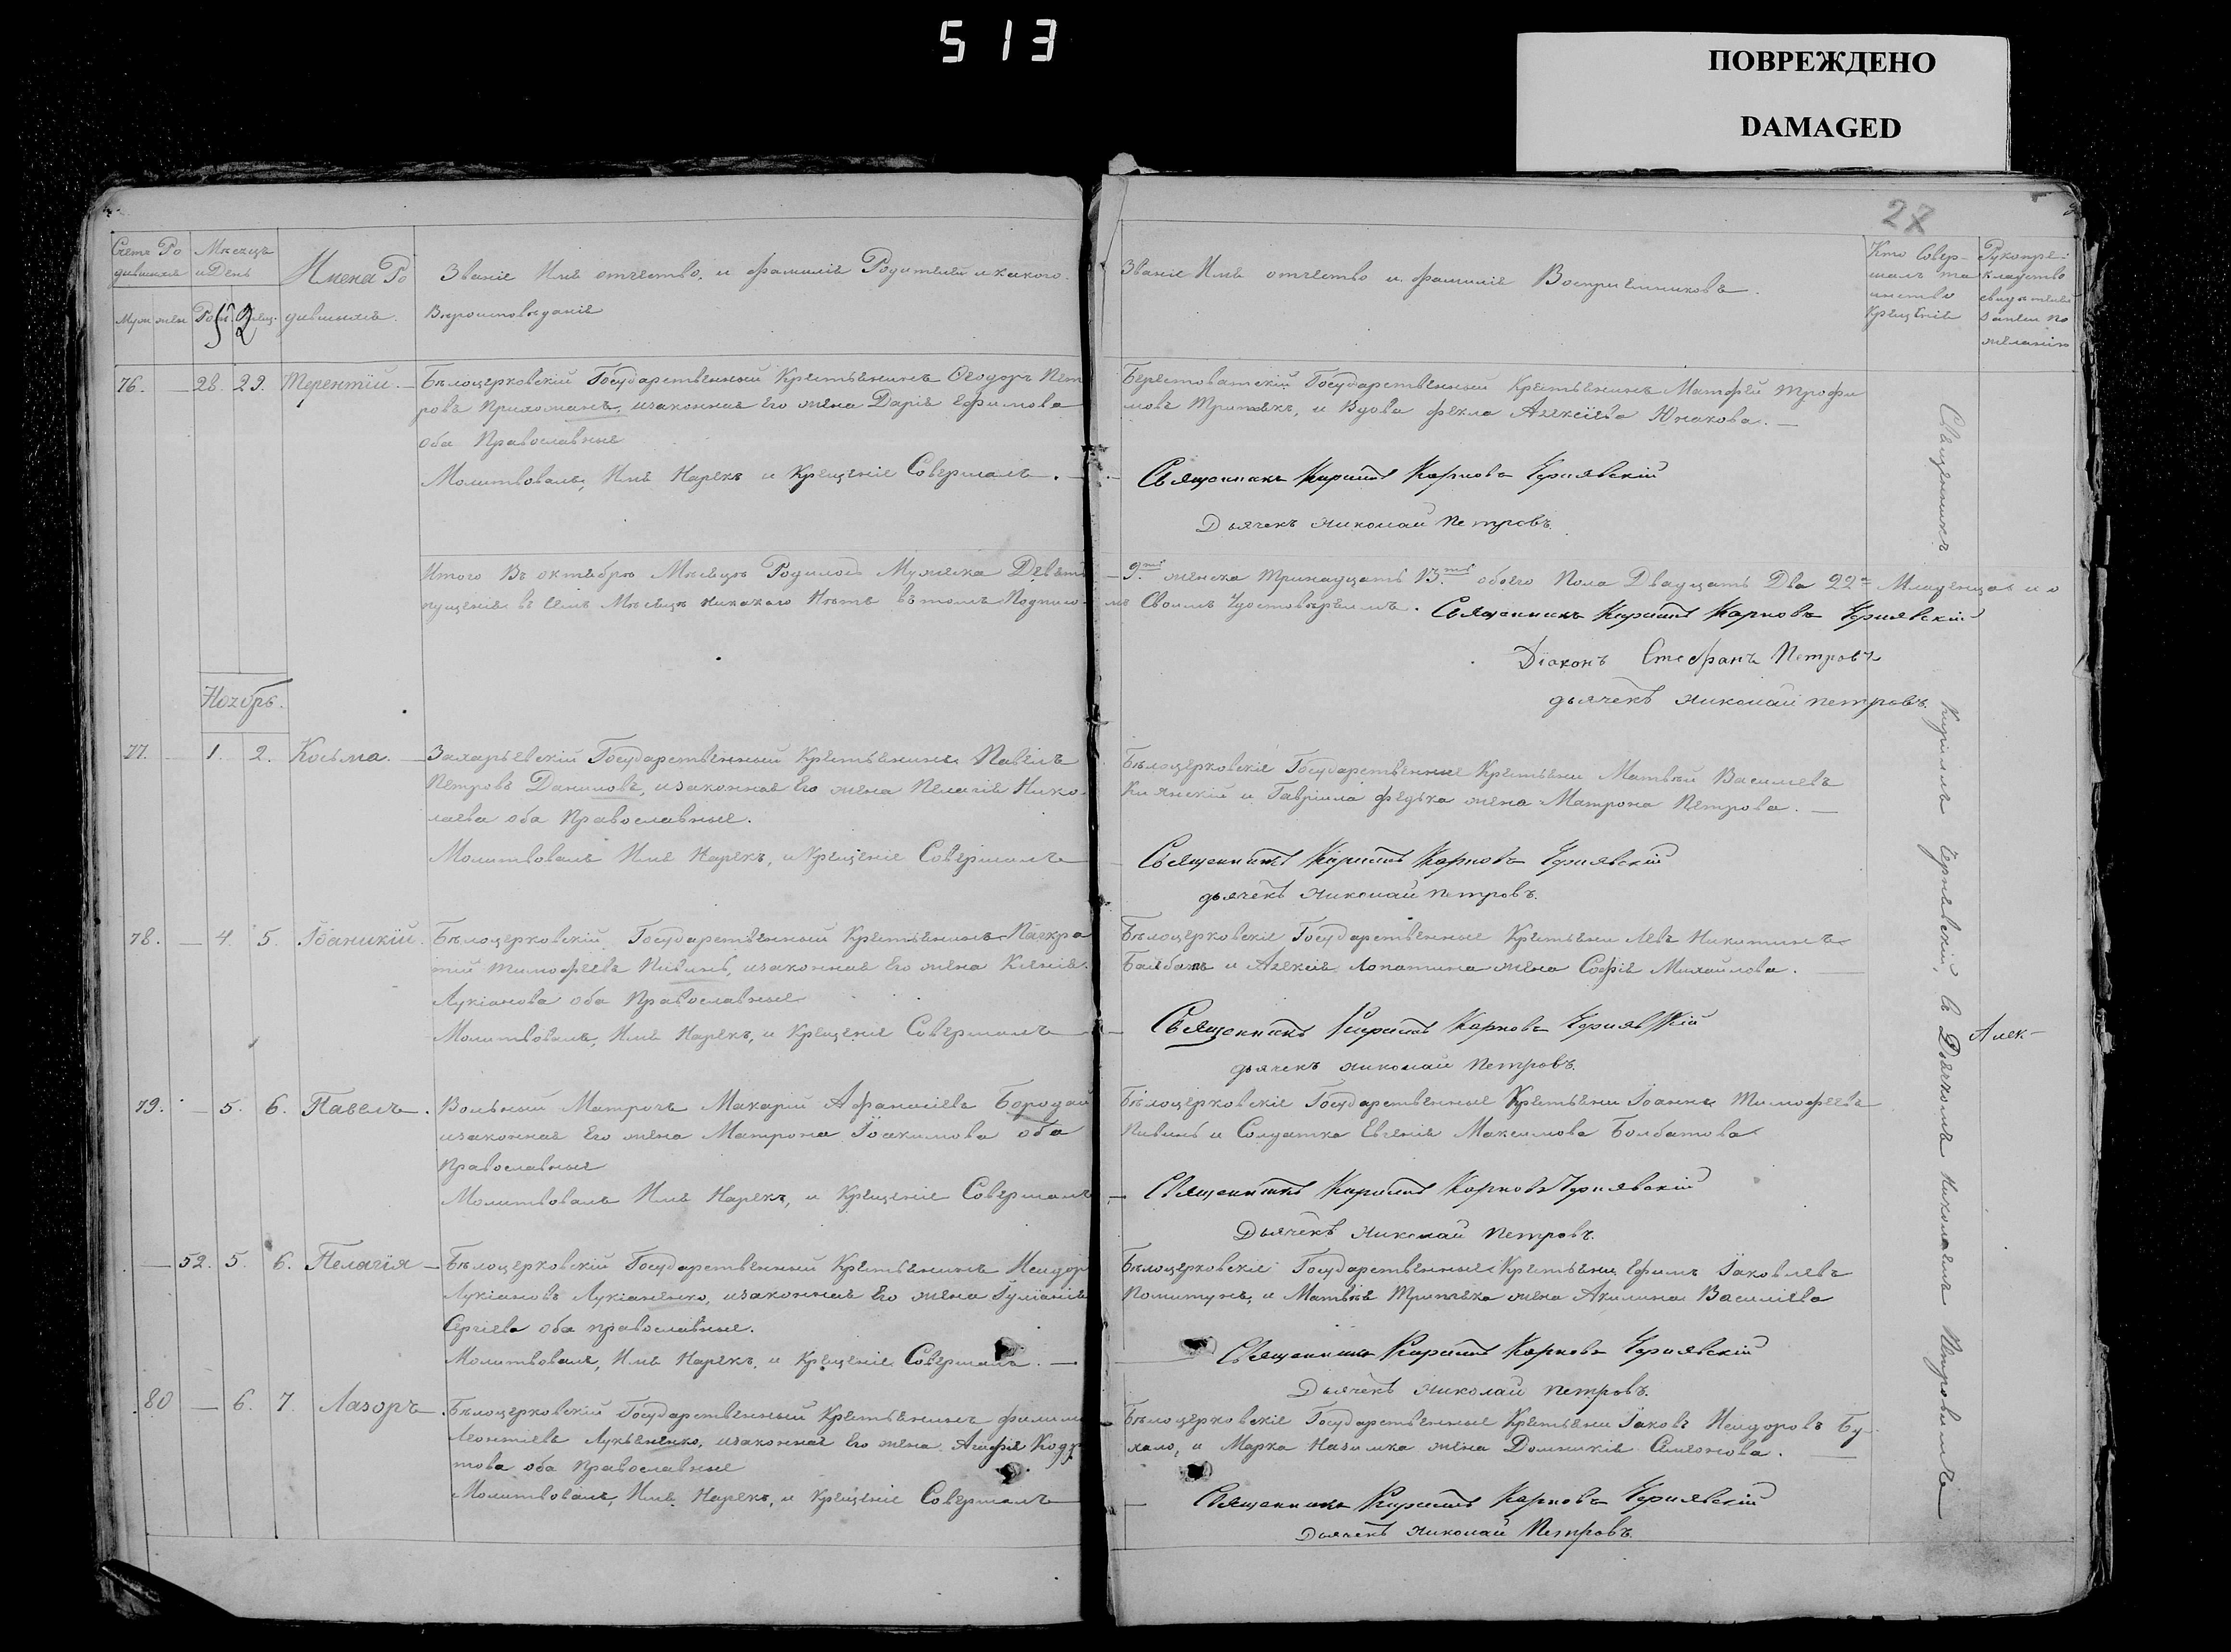 513
ПОВРЕЖДЕНО
DAMAGED
27
Счетъ Ро
дившихся
Муж жен
Мѣсяцъ
и День
Имена Ро
дившихся.
Званіе Имя отчество, и фамилія Родителей и какого
Вѣроисповѣданія
Званіе Имя отчество и фамилія Воспріемниковъ.
Кто Совер-
шалъ та
инство
Крещенія
Рукопри-
кладство
свидѣтелей
записи по
желанію
76. — 28. 29. Терентій. — Бѣлоцерковскій Государственный Крестьянинъ Ѳеодоръ Пет
ровъ Прихоманъ, изаконная Его жена Дарія Ефимова
оба Православные
Молитвовалъ, Имя Нарекъ и Крещеніе Совершалъ. —
Берестоватскій Государственный Крестьянинъ Матфей Трофи
мовъ и Вдова Фекла Алексіева Юнакова. —
Священникъ Кириллъ Карповъ Чернявскій
Дьячекъ Николай Петровъ.
Итого Въ октябрѣ Мѣсяцѣ Родилось Мужеска Девять
пущенія въ семъ Мѣсяцѣ никакого Нѣтъ въ томъ Подписо
— 9.ть женска тринадцать 13.ть обоего Пола Двадцать Два 22а Младенца и о
мъ Своимъ Удостовѣряемъ. Священникъ Кириллъ Карповъ Чернявскій
Діаконъ Стефанъ Петровъ
дьячекъ Николай Петровъ.
Ноябрь.
77. — 1. 2. Косьма. — Захарьевскій Государственный Крестьянинъ Павелъ
Петровъ Даниловъ, изаконная Его жена Пелагія Нико
лаева оба Православные.
Молитвовалъ Имя Нарекъ, и Крещеніе Совершалъ
Бѣлоцерковскіе Государственные Крестьяни Матвѣй Василіевъ
Киянскій и Гавріила Федька жена Матрона Петрова. —
Священникъ Кириллъ Карповъ Чернявскій
дьячекъ Николай Петровъ.
78. — 4. 5. Іоаникій. Бѣлоцерковскій Государственный Крестьянинъ Панкра
тій Тимофеевъ Пивинь, изаконная Его жена Ксенія
Лукіанова оба Православные
Молитвовалъ, Имя Нарекъ, и Крещеніе Совершалъ
Бѣлоцерковскіе Государственные Крестьяни Левъ Никитинъ
и Алексія Лопатина жена Софія Михайлова. —
Священникъ Кириллъ Карповъ Чернявскій
дьячекъ Николай Петровъ.
Алек-
79. — 5. 6. Павелъ. Вольный Матросъ Макарій Афанасіевъ Бородай
изаконная Его жена Матрона Іоакимова оба
Православные
Молитвовалъ Имя Нарекъ, и Крещеніе Совершалъ
Бѣлоцерковскіе Государственные Крестьяни Іоаннъ Тимофеевъ
Пивинь и Солдатка Евгенія Максимова Болбатова
— Священникъ Кириллъ Карповъ Чернявскій
Дьячекъ Николай Петровъ.
— 52. 5. 6. Пелагія — Бѣлоцерковскій Государственный Крестьянинъ Исидоръ
Лукіановъ Лукіаненко, изаконная Его жена Іуліанія
Сергіева оба православные.
Молитвовалъ, Имя Нарекъ, и Крещеніе Совершалъ. —
Бѣлоцерковскіе Государственные Крестьяни Ефимъ Іаковлевъ
и Матвѣя жена Акилина Василіева
Священникъ Кириллъ Карповъ Чернявскій
Дьячекъ Николай Петровъ.
80 — 6. 7. Лазоръ — Бѣлоцерковскій Государственный Крестьянинъ
Леонтіевъ Лукьяненко, изаконная Его жена Агафія Кодра
това оба Православные
Молитвовалъ, Имя Нарекъ, и Крещеніе Совершалъ
Бѣлоцерковскіе Государственные Крестьяни Іаковъ Исидоровъ Бу
хало, и Марка Назимка жена Домникія Симеонова. —
— Священникъ Кириллъ Карповъ Чернявскій
Дьячекъ Николай Петровъ.
Священникъ Кириллъ Чернявскій, съ Дьячкомъ Николаемъ Петровымъ